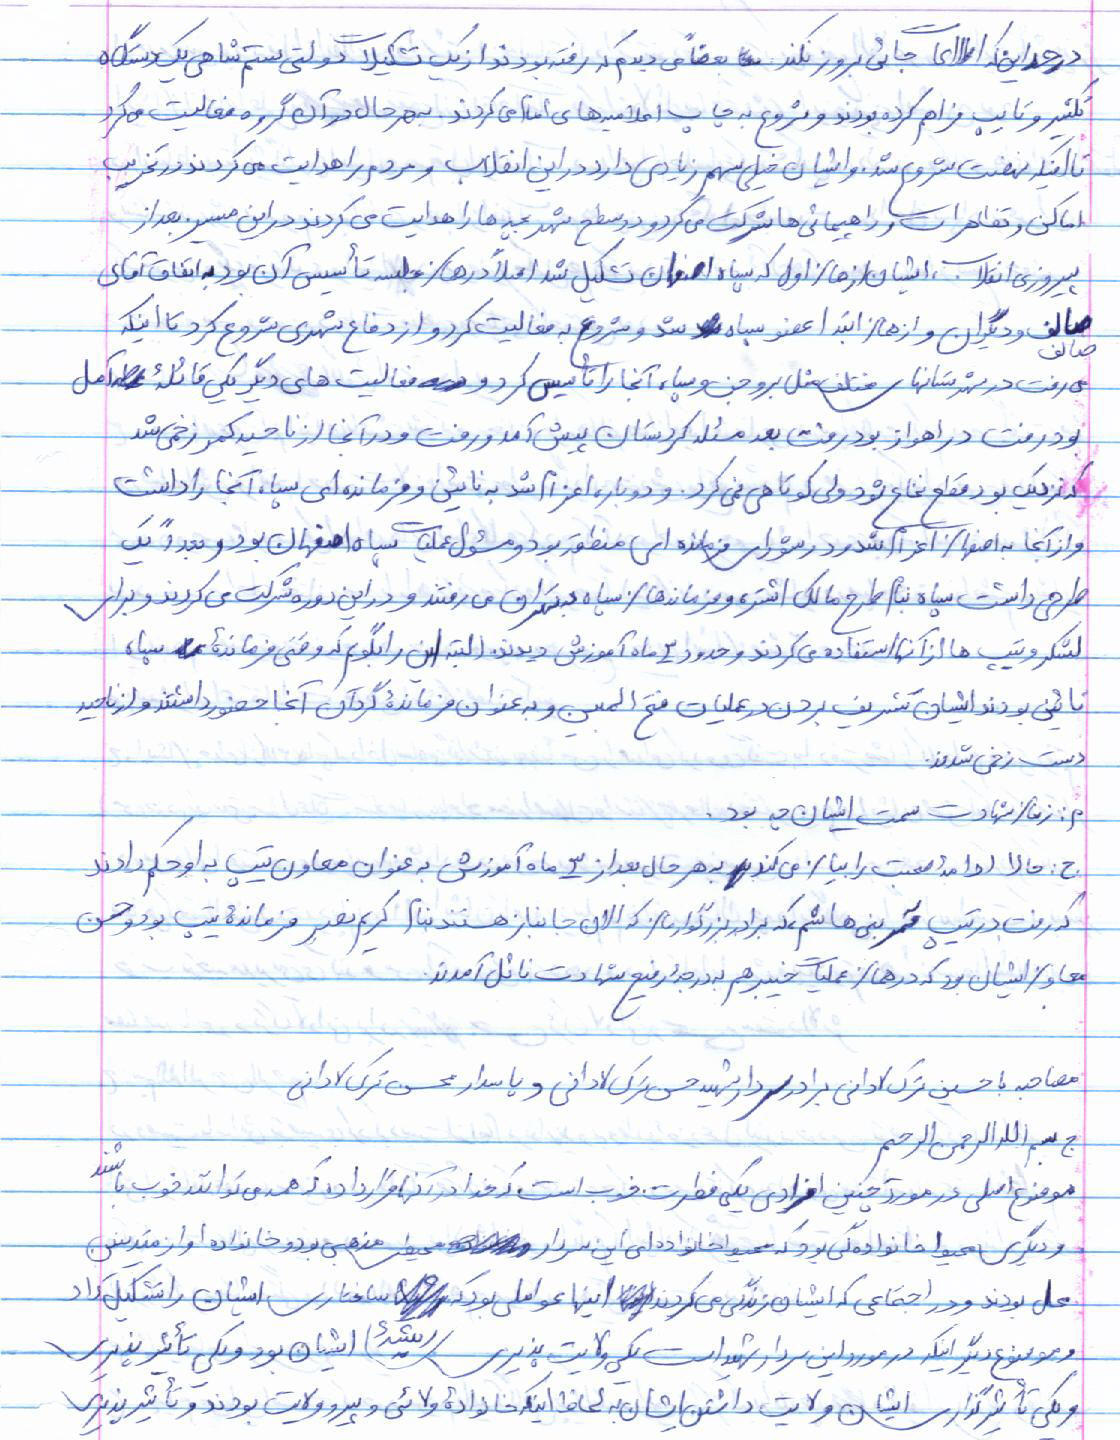 در حد اینکه اطلاعات جائی بروز نکند. بعضاً می دیدم که رفته بودند از یک تشکیلات دولتی ستم شاهی یک دستگاه
تکثیر و تایپ فراهم کرده بودند و شروع به چاپ اعلامیه های امام می کردند. بهر حال در آن گروه فعالیت می کرد
تا اینکه نهضت شروع شد. و ایشان خیلی سهم زیادی دارد در این انقلاب و مردم را هدایت می کردند در تخریب
اماکن و تظاهرات و راهپیمائی ها شرکت می کرد و در سطح شهر بچه ها را هدایت می کردند در این مسیر. بعد از
پیروزی انقلاب، ایشان از همان اول که سپاه اصفهان تشکیل شد اصلاً در همان جلسه تأسیس آن بود به اتفاق آقای
سالک و دیگران و از همان ابتدا عضو سپاه شد و شروع به فعالیت کرد و از دفاع شهری شروع کرد تا اینکه
سالک
می رفت در شهرستانهای مختلف مثل بروجن و سپاه آنجا را تأسیس کرد و فعالیت های دیگر یکی قائلهٔ آمل
بود رفت در اهواز بود رفت بعد مسئله کردستان پیش آمد و رفت و در آنجا از ناحیه کمر زخمی شد
که نزدیک بود قطع نخاع شود ولی کوتاهی نمی کرد. و دوباره اعزام شد به نائین و فرمانده ای سپاه آنجا را داشت
و از آنجا به اصفهان اعزام شد و در شورای فرمانده ای منطقه بود و مسئول عملیات سپاه اصفهان بود و بعداً یک
طرحی داشت سپاه بنام طرح مالک اشتر و فرماندهان سپاه به تهران می رفتند و در این دوره شرکت می کردند و برای
لشکر و تیپ ها از آنها استفاده می کردند و حدود ۳ ماه آموزش دیدند، البته این را بگویم که وقتی فرماندهٔ سپاه
نائین بودند ایشان تشریف بردن در عملیات فتح المبین و به عنوان فرماندهٔ گردان آنجا حضور داشتند و از ناحیه
دست زخمی شدند.
م: زمان شهادت سمت ایشان چه بود.
ج: حالا ادامهٔ صحبت را بیان می کند به هر حال بعد از ۳ ماه آموزشی به عنوان معاون تیپ به او حکم دادند
که رفت در تیپ قمر بنی هاشم که برادر بزرگوارمان که الان جانباز هستند بنام کریم نصر فرماندهٔ تیپ بود و حسن
معاون ایشان بود که در همان عملیات خیبر هم به درجهٔ رفیع شهادت نائل آمدند.
مصاحبه با حسین ترک لادانی برادر سردار شهید حسن ترک لادانی و پاسدار محسن ترک لادانی
ج بسم الله الرحمن الرحیم
موضوع اصلی در مورد چنین افرادی یکی فطرت خوب است که خدا در آنها قرار داده که همه می توانند خوب باشند
و دیگری محیط خانوادگی بود که محیط خانواده ای این سردار محیطی مذهبی بود و خانواده او از متدینین
محل بودند و در اجتماعی که ایشان زندگی می کردند اینها عواملی بود که ساختاری ایشان را تشکیل داد
و موضوع دیگر اینکه در مورد این سردار شهید است یکی ولایت پذیری (ریشهٔ) ایشان بود و یکی تأثیر پذیری
و یکی تأثیر گذاری ایشان ولایت داشتن ایشان به لحاظ اینکه خانوادهٔ ولائی و پیرو ولایت بودند و تأثیر پذیری